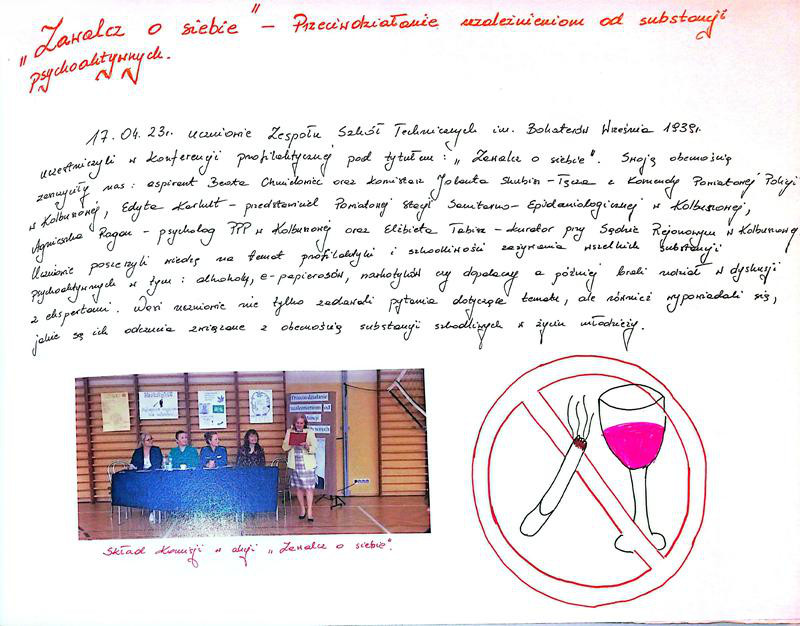 „Zawalcz o siebie" – Przeciwdziałanie uzależnieniom od substancji
psychoaktywnych.
17.04.23r. uczniowie Zespołu Szkół Technicznych im. Bohaterów Września 1939r.
uczestniczyli w konferencji profilaktycznej pod tytułem: „Zawalcz o siebie". Swoją obecnością
zaszczyciły nas: aspirant Beata Chmielowiec oraz komisarz Jolanta Skubisz-Tęcza z Komendy Powiatowej Policji
w Kolbuszowej, Edyta Karkut – przedstawiciel Powiatowej Stacji Sanitarno-Epidemiologicznej w Kolbuszowej,
Agnieszka Ragan – psycholog PPP w Kolbuszowej oraz Elżbieta Tabisz – kurator przy Sądzie Rejonowym w Kolbuszowej
Uczniowie poszerzyli wiedzę na temat profilaktyki i szkodliwości zażywania wszelkich substancji
psychoaktywnych w tym: alkoholu, e-papierosów, narkotyków czy dopalaczy a później brali udział w dyskusji
z ekspertami. Warto uczniowie nie tylko zadawali pytania dotyczące tematu, ale również wypowiadali się,
jakie są ich odczucia związane z obecnością substancji szkodliwych w życiu młodzieży.
Przeciwdziałanie
uzależnieniom od
Skład Komisji w akcji „Zawalcz o siebie".